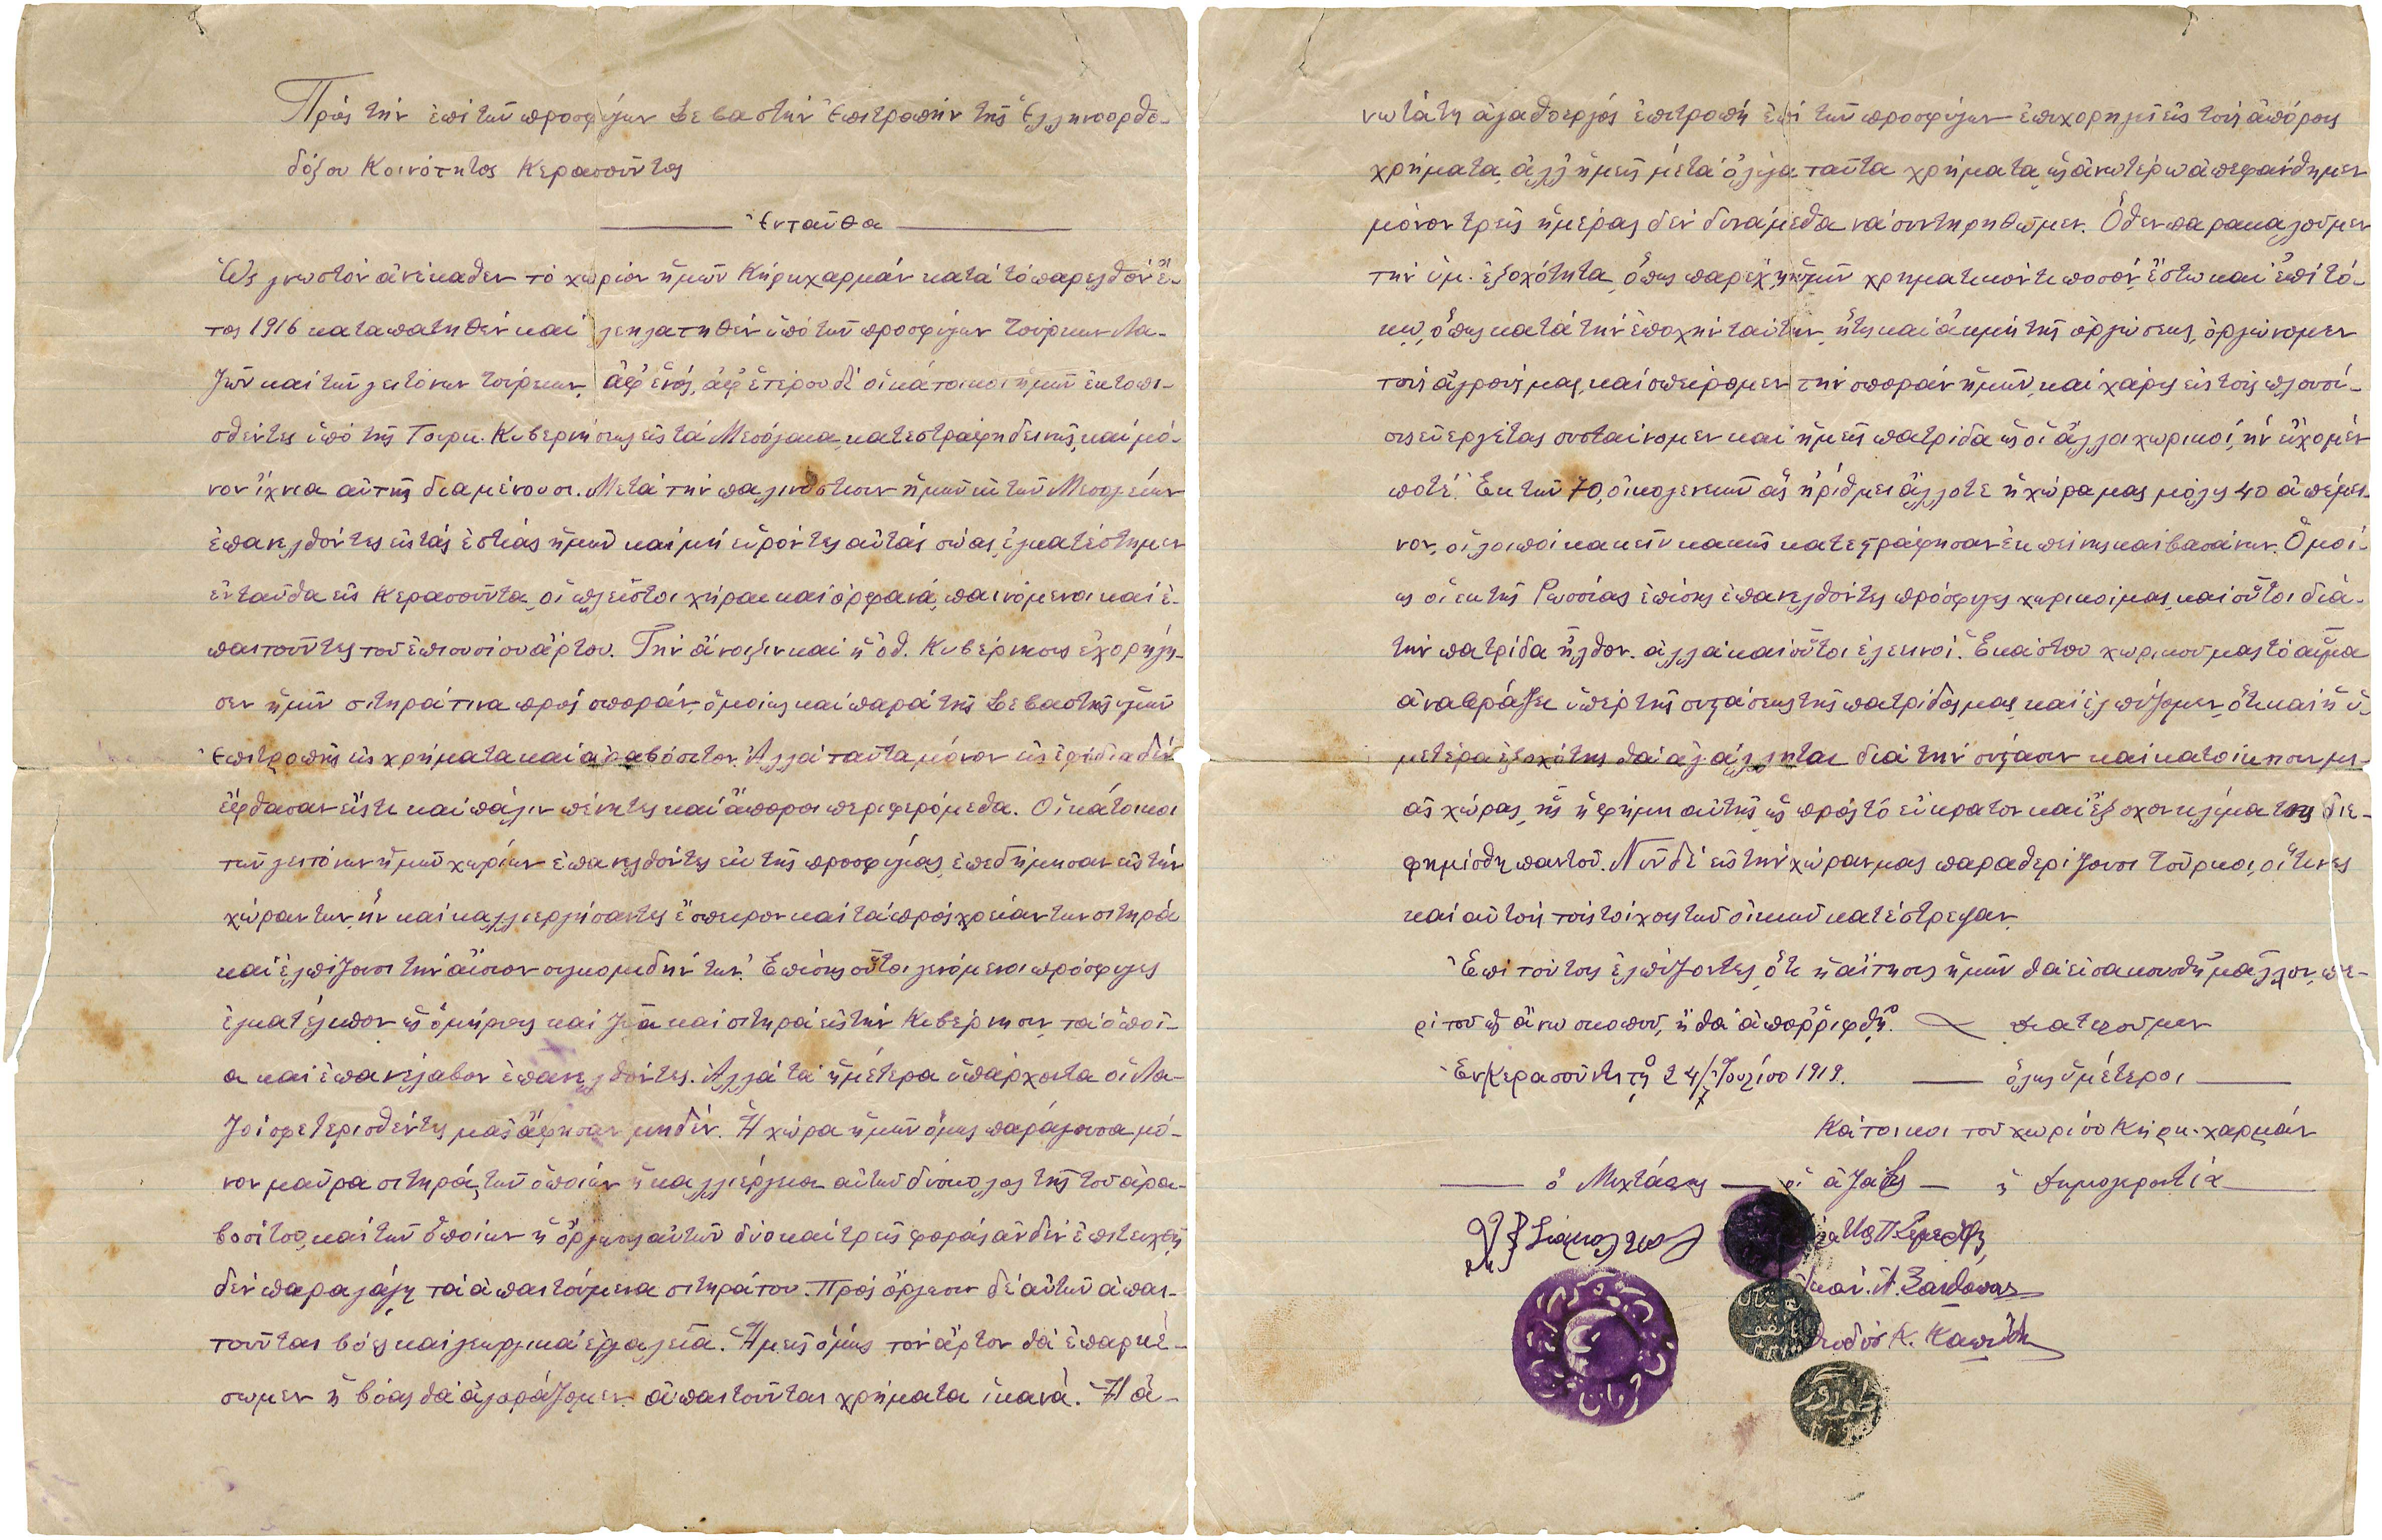 Πρὸς τὴν ἐπὶ τῶν προσφύγων Σεβαστὴν Ἐπιτροπὴν τῆς Ἑλληνοορθο-
δόξου Κοινότητος Κερασοῦντος
Ἐνταῦθα
Ὡς γνωστὸν ἀνέκαθεν τὸ χωρίον ἡμῶν Κήρικχαρμὰν κατὰ τὸ παρελθὸν ἔ-
τος 1916 καταπατηθὲν καὶ λεηλατηθὲν ὑπὸ τῶν προσφύγων Τούρκων Λα-
ζῶν καὶ τῶν γειτόνων Τούρκων, ἀφ' ἑνός, ἀφ' ἑτέρου δὲ οἱ κάτοικοι ἡμῶν ἐκτοπι-
σθέντες ὑπὸ τῆς Τουρκ. Κυβερνήσεως εἰς τὰ Μεσόγεια, κατεστράφη δεινῶς, καὶ μό-
νον ἴχνια αὐτῆς διαμένουσι. Μετὰ τὴν παλινόστισιν ἡμῶν ἐκ τῶν Μεσογείων
ἐπανελθόντες εἰς τὰς ἑστίας ἡμῶν καὶ μὴ εὑρόντες αὐτὰς σώας, ἐγκατέστημεν
ἐνταῦθα εἰς Κερασοῦντα, οἱ πλεῖστοι χῆραι καὶ ὀρφανά, πεινόμενοι καὶ ἐ-
παιτοῦντες τοῦ ἐπιουσίου ἄρτου. Τὴν ἄνοιξιν καὶ ἡ ὀθ. Κυβέρνησις ἐχορήγη-
σεν ἡμῖν σιτηρά τινα πρὸς σποράν, ὁμοίως καὶ παρὰ τῆς Σεβαστῆς ὑμῶν
Ἐπιτροπῆς εἰς χρήματα καὶ ἀραβόσιτον. Ἀλλὰ ταῦτα μόνον ὡς ἐφόδια δὲν
ἔφθασαν ὥστε καὶ πάλιν πένητες καὶ ἄποροι περιφερόμεθα. Οἱ κάτοικοι
τῶν γειτόνων ἡμῶν χωρίων ἐπανελθόντες ἐκ τῆς προσφυγίας, ἐπεδήμησαν εἰς τὴν
χώραν των, ἣν καὶ καλλιεργήσαντες ἔσπειρον καὶ τὰ πρὸς χρείαν των σιτηρά
καὶ ἐλπίζουσι τὴν αἴσιον συγκομιδήν των. Ἐπίσης οὗτοι γενόμενοι πρόσφυγες
ἐγκατέλιπον ὡς ὁμήρους καὶ ζῶα καὶ σιτηρὰ εἰς τὴν Κυβέρνησιν, τὰ ὁποῖ-
α καὶ ἐπανέλαβον ἐπανελθόντες. Ἀλλὰ τὰ ἡμέτερα ὑπάρχοντα οἱ Λα-
ζοὶ σφετερισθέντες μᾶς ἄφησαν μηδέν. Ἡ χώρα ἡμῶν ὅμως παράγουσα μό-
νον μαῦρα σιτηρά, τῶν ὁποίων ἡ καλλιέργεια αὐτῶν δύσκολος τῆς τοῦ ἀρα-
βοσίτου, καὶ τῶν ὁποίων ἡ ὄργωσις αὐτῶν δύο καὶ τρεῖς φορὰς ἂν δὲν ἐπιτευχθῇ
δὲν παραγάγῃ τὰ ἀπαιτούμενα σιτηρά του. Πρὸς ὄργωσιν δὲ αὐτῶν ἀπαι-
τοῦνται βόες καὶ γεωργικὰ ἐργαλεῖα. Ἡμεῖς ὅμως τὸν ἄρτον θὰ ἐπαρκέ-
σωμεν ἢ βόας θὰ ἀγοράζομεν. ἀπαιτοῦνται χρήματα ἱκανά. Ἡ ἀ-
νωτάτη ἀγαθοεργὸς ἐπιτροπὴ ἐπὶ τῶν προσφύγων ἐπιχορηγεῖ εἰς τοὺς ἀπόρους
χρήματα, ἀλλ' ἡμεῖς μετὰ ὀλίγα ταῦτα χρήματα, ὡς ἀνωτέρω ἀπεφάνθημεν
μόνον τρεῖς ἡμέρας δὲν δυνάμεθα νὰ συντηρηθῶμεν. Ὅθεν παρακαλοῦμεν
τὴν ὑμ. ἐξοχότητα, ὅπως παρέχῃ ἡμῖν χρηματικόν τι ποσόν, ἔστω καὶ ἐπὶ τό-
κῳ, ὅπως κατὰ τὴν ἐποχὴν ταύτην, ἥτις καὶ ἀκμὴ τῆς ὀργώσεως, ὀργώνομεν
τοὺς ἀγρούς μας, καὶ σπείρομεν τὴν σπορὰν ἡμῶν, καὶ χάρις εἰς τοὺς πλουσί-
ους εὐεργέτας συσταίνομεν καὶ ἡμεῖς πατρίδα ὡς οἱ ἄλλοι χωρικοί, ἣν εἴχομέν
ποτέ. Ἐκ τῶν 70, οἰκογενειῶν ἃς ἠρίθμει ἄλλοτε ἡ χώρα μας μόλις 40 ἀπέμει-
νον, οἱ λοιποὶ κακὴν κακῶς κατεστράφησαν ἐκ πείνης καὶ βασάνων. Ὁμοί-
ως οἱ ἐκ τῆς Ρωσσίας ἐπίσης ἐπανελθόντες πρόσφυγες χωρικοί μας, καὶ οὗτοι διὰ
τὴν πατρίδα ἦλθον. ἀλλὰ καὶ οὗτοι ἐλεεινοί. Ἑκάστου χωρικοῦ μας τὸ αἷμα
ἀναβράζει ὑπὲρ τῆς συστάσεως τῆς πατρίδος μας, καὶ ἐλπίζομεν, ὅτι καὶ ἡ ὑ-
μετέρα ἐξοχότης θὰ ἀγάλληται διὰ τὴν σύστασιν καὶ κατοίκησιν μι-
ᾶς χώρας, ἧς ἡ φήμη αὐτῆς ὡς πρὸς τὸ εὔκρατον καὶ ἔξοχον κλῖμά της διε-
φημίσθη παντοῦ. Νῦν δὲ εἰς τὴν χώραν μας παραθερίζουσι Τοῦρκοι, οἵτινες
καὶ αὐτοὺς τοὺς τοίχους τῶν οἰκιῶν κατέστρεψαν.
Ἐπὶ τούτοις ἐλπίζοντες, ὅτι ἡ αἴτησις ἡμῶν θὰ εἰσακουσθῇ μᾶλλον, πε-
ρὶ τοῦ ὡς ἄνω σκοποῦ, ἢ θὰ ἀπορριφθῇ. διατελοῦμεν
Ἐν Κερασοῦντι τῇ 24 Ἰουλίου 1919. ὅλως ὑμέτεροι
Κάτοικοι τοῦ χωρίου Κήρικ-χαρμάν
ὁ Μιχτάρης οἱ ἀζάδες ἡ δημογεροντία